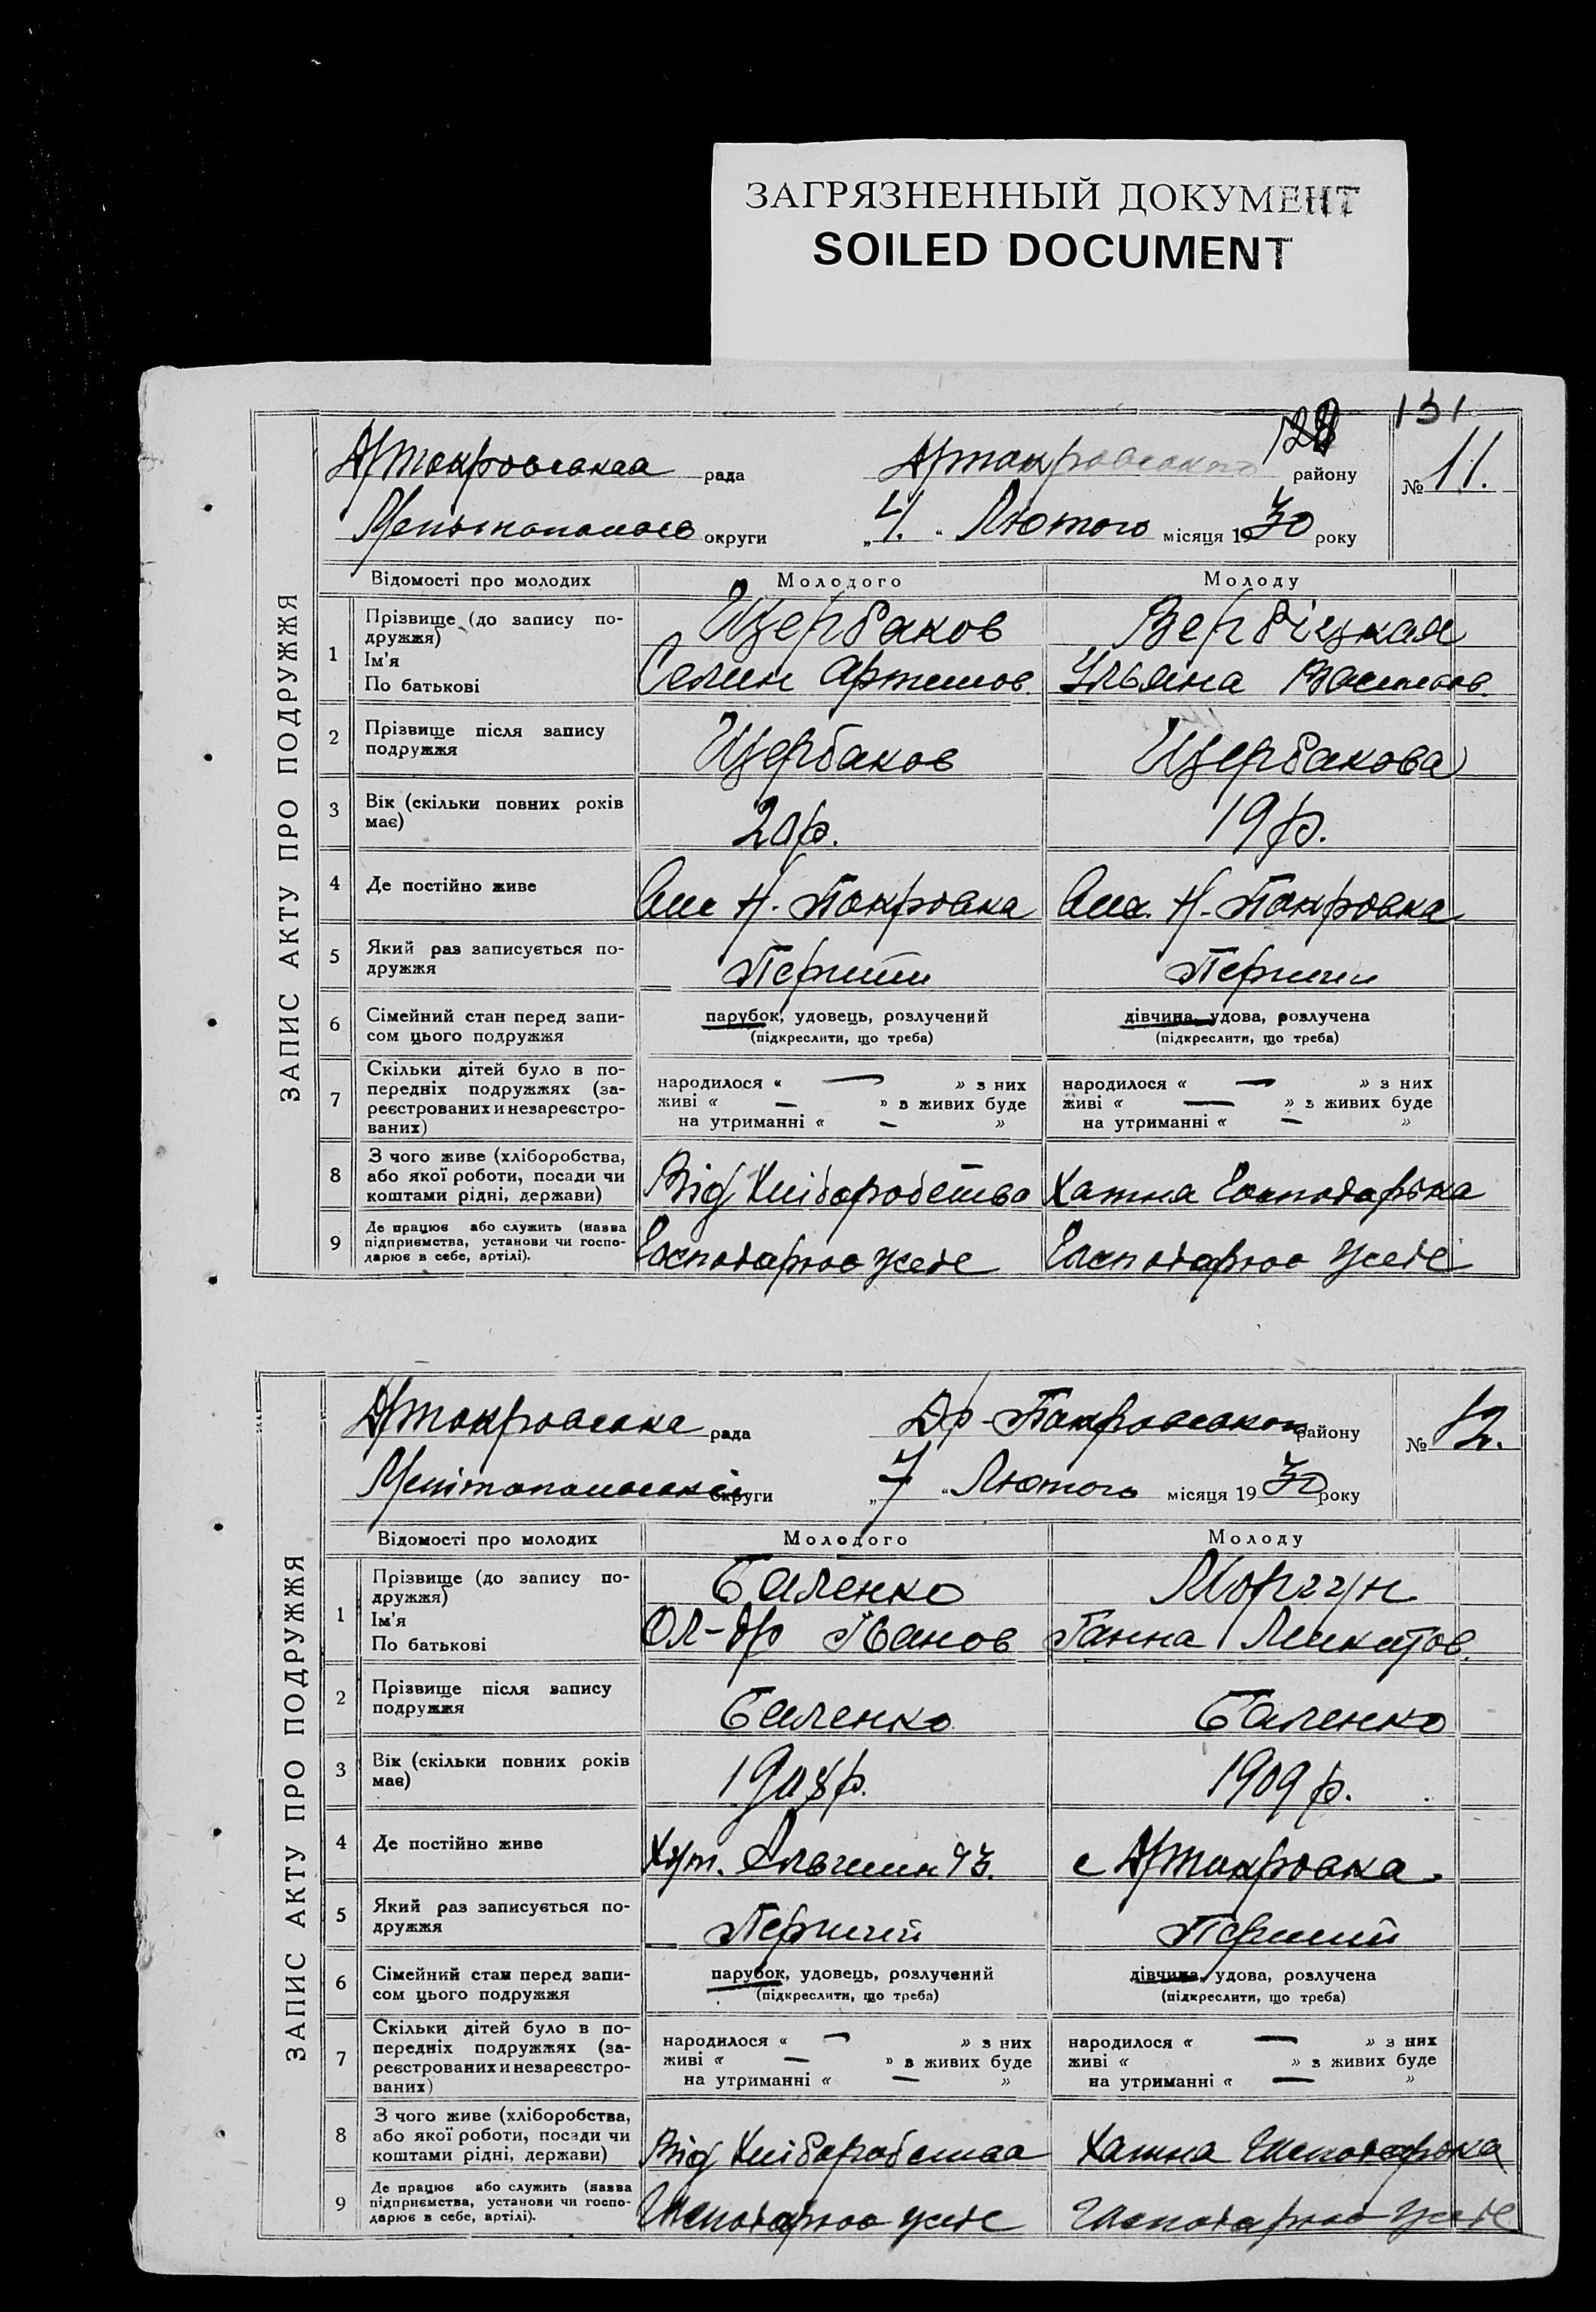 ЗАГРЯЗНЕННЫЙ ДОКУМЕНТ
SOILED DOCUMENT
131
ЗАПИС АКТУ ПРО ПОДРУЖЖЯ
рада району № 11.
округи „4." Лютого місяця 1930 року
Відомості про молодих Молодого Молоду
1 Прізвище (до запису по-
дружжя)
Ім'я
По батькові
Щербаков Вербіцкая
Ульяна
2 Прізвище після запису
подружжя
Щербаков Щербакова
3 Вік (скільки повних років
має)
20р. 19р.
4 Де постійно живе
Н. Покровка Н. Покровка
5 Який раз записується по-
дружжя
Перший Перший
6 Сімейний стан перед запи-
сом цього подружжя
парубок, удовець, розлучений дівчина, удова, розлучена
(підкреслити, що треба) (підкреслити, що треба)
7 Скільки дітей було в по-
передніх подружжях (за-
реєстрованих и незареєстро-
ваних)
народилося « — » з них народилося « — » з них
живі « — » з живих буде живі « — » з живих буде
на утриманні « — » на утриманні « — »
8 З чого живе (хліборобства,
або якої роботи, посади чи
коштами рідні, держави)
Від Хліборобства Хатна Господарька
9 Де працює або служить (назва
підприємства, установи чи госпо-
дарює в себе, артілі).
Господарюо усебе Господарюо усебе
ЗАПИС АКТУ ПРО ПОДРУЖЖЯ
рада району № 12.
округи „7" Лютого місяця 1930 року
Відомості про молодих Молодого Молоду
1 Прізвище (до запису по-
дружжя)
Ім'я
По батькові
Баленко Моргун
Ол-др Іванов Ганна
2 Прізвище після запису
подружжя
Баленко Баленко
3 Вік (скільки повних років
має)
1908р. 1909р.
4 Де постійно живе
Хут. с
5 Який раз записується по-
дружжя
Перший Перший
6 Сімейний стан перед запи-
сом цього подружжя
парубок, удовець, розлучений дівчина, удова, розлучена
(підкреслити, що треба) (підкреслити, що треба)
7 Скільки дітей було в по-
передніх подружжях (за-
реєстрованих и незареєстро-
ваних)
народилося « — » з них народилося « — » з них
живі « — » з живих буде живі « » з живих буде
на утриманні « — » на утриманні « — »
8 З чого живе (хліборобства,
або якої роботи, посади чи
коштами рідні, держави)
Від Хліборобства Хатна Господарька
9 Де працює або служить (назва
підприємства, установи чи госпо-
дарює в себе, артілі).
Господарюо усебе Господарюо усебе